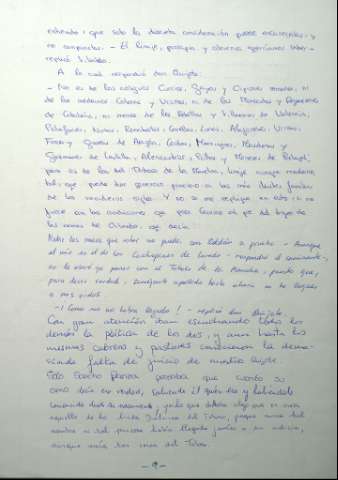 extremado, que sólo la discreta consideración puede encarecerlas, y
no compararlas. - El linaje, prosapia y alcurnia querríamos saber -
replicó Vivaldo.
A lo cual respondió don Quijote:
- No es de los antiguos Curcios, Gayos y Cipiones romanos, ni
de los modernos Colonas y Ursinos, ni de los Moncadas y Requesenes
de Cataluña, ni menos de los Rebellas y Villanovas de Valencia,
Palafoxes, Nuzas, Rocabertis, Corellas, Lunas, Alagones, Urreas,
Foces y Gurreas de Aragón, Cerdas, Manriques, Mendozas y
Guzmanes de Castilla, Alencastros, Pallas y Meneses de Portugal;
pero es de los del Toboso de la Mancha, linaje, aunque moderno,
tal, que puede dar generoso principio a las más ilustres familias
de los venideros siglos. Y no se me replique en esto, si no
fuere con las condiciones que puso Cervino al pie del trofeo de
las armas de Orlando, que decía:
Nadie las mueva que estar no pueda con Roldán a prueba - Aunque
el mío es de los Cachopines de Laredo - respondió el caminante -,
no le osaré yo poner con el del Toboso de la Mancha, puesto que,
para decir verdad, semejante apellido hasta ahora no ha llegado
a mis oídos.
- ¡Como eso no habrá llegado! - replicó don Quijote.
Con gran atención iban escuchando todos los
demás la plática de los dos, y aun hasta los
mismos cabreros y pastores conocieron la dema-
siada falta de juicio de nuestro Quijote.
Sólo Sancho Panza pensaba que cuanto su
amo decía era verdad, sabiendo él quién era y habiéndole
conocido desde su nacimiento; y en lo que dudaba algo era en creer
aquello de la linda Dulcinea del Toboso, porque nunca tal
nombre ni tal princesa había llegado jamás a su noticia,
aunque vivía tan cerca del Toboso.
- 9 -